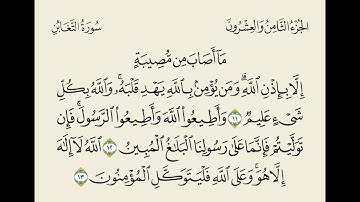 الجُزْءُ الثَّامِنُ وَالعِشْرُونَ
سُورَةُ التَّغَابُنِ
مَآ أَصَابَ مِن مُّصِيبَةٍ
إِلَّا بِإِذْنِ ٱللَّهِۗ وَمَن يُؤْمِنۢ بِٱللَّهِ يَهْدِ قَلْبَهُۥۚ وَٱللَّهُ بِكُلِّ
شَىْءٍ عَلِيمٌ ١١ وَأَطِيعُوا۟ ٱللَّهَ وَأَطِيعُوا۟ ٱلرَّسُولَۚ فَإِن
تَوَلَّيْتُمْ فَإِنَّمَا عَلَىٰ رَسُولِنَا ٱلْبَلَٰغُ ٱلْمُبِينُ ١٢ ٱللَّهُ لَآ إِلَٰهَ
إِلَّا هُوَۚ وَعَلَى ٱللَّهِ فَلْيَتَوَكَّلِ ٱلْمُؤْمِنُونَ ١٣